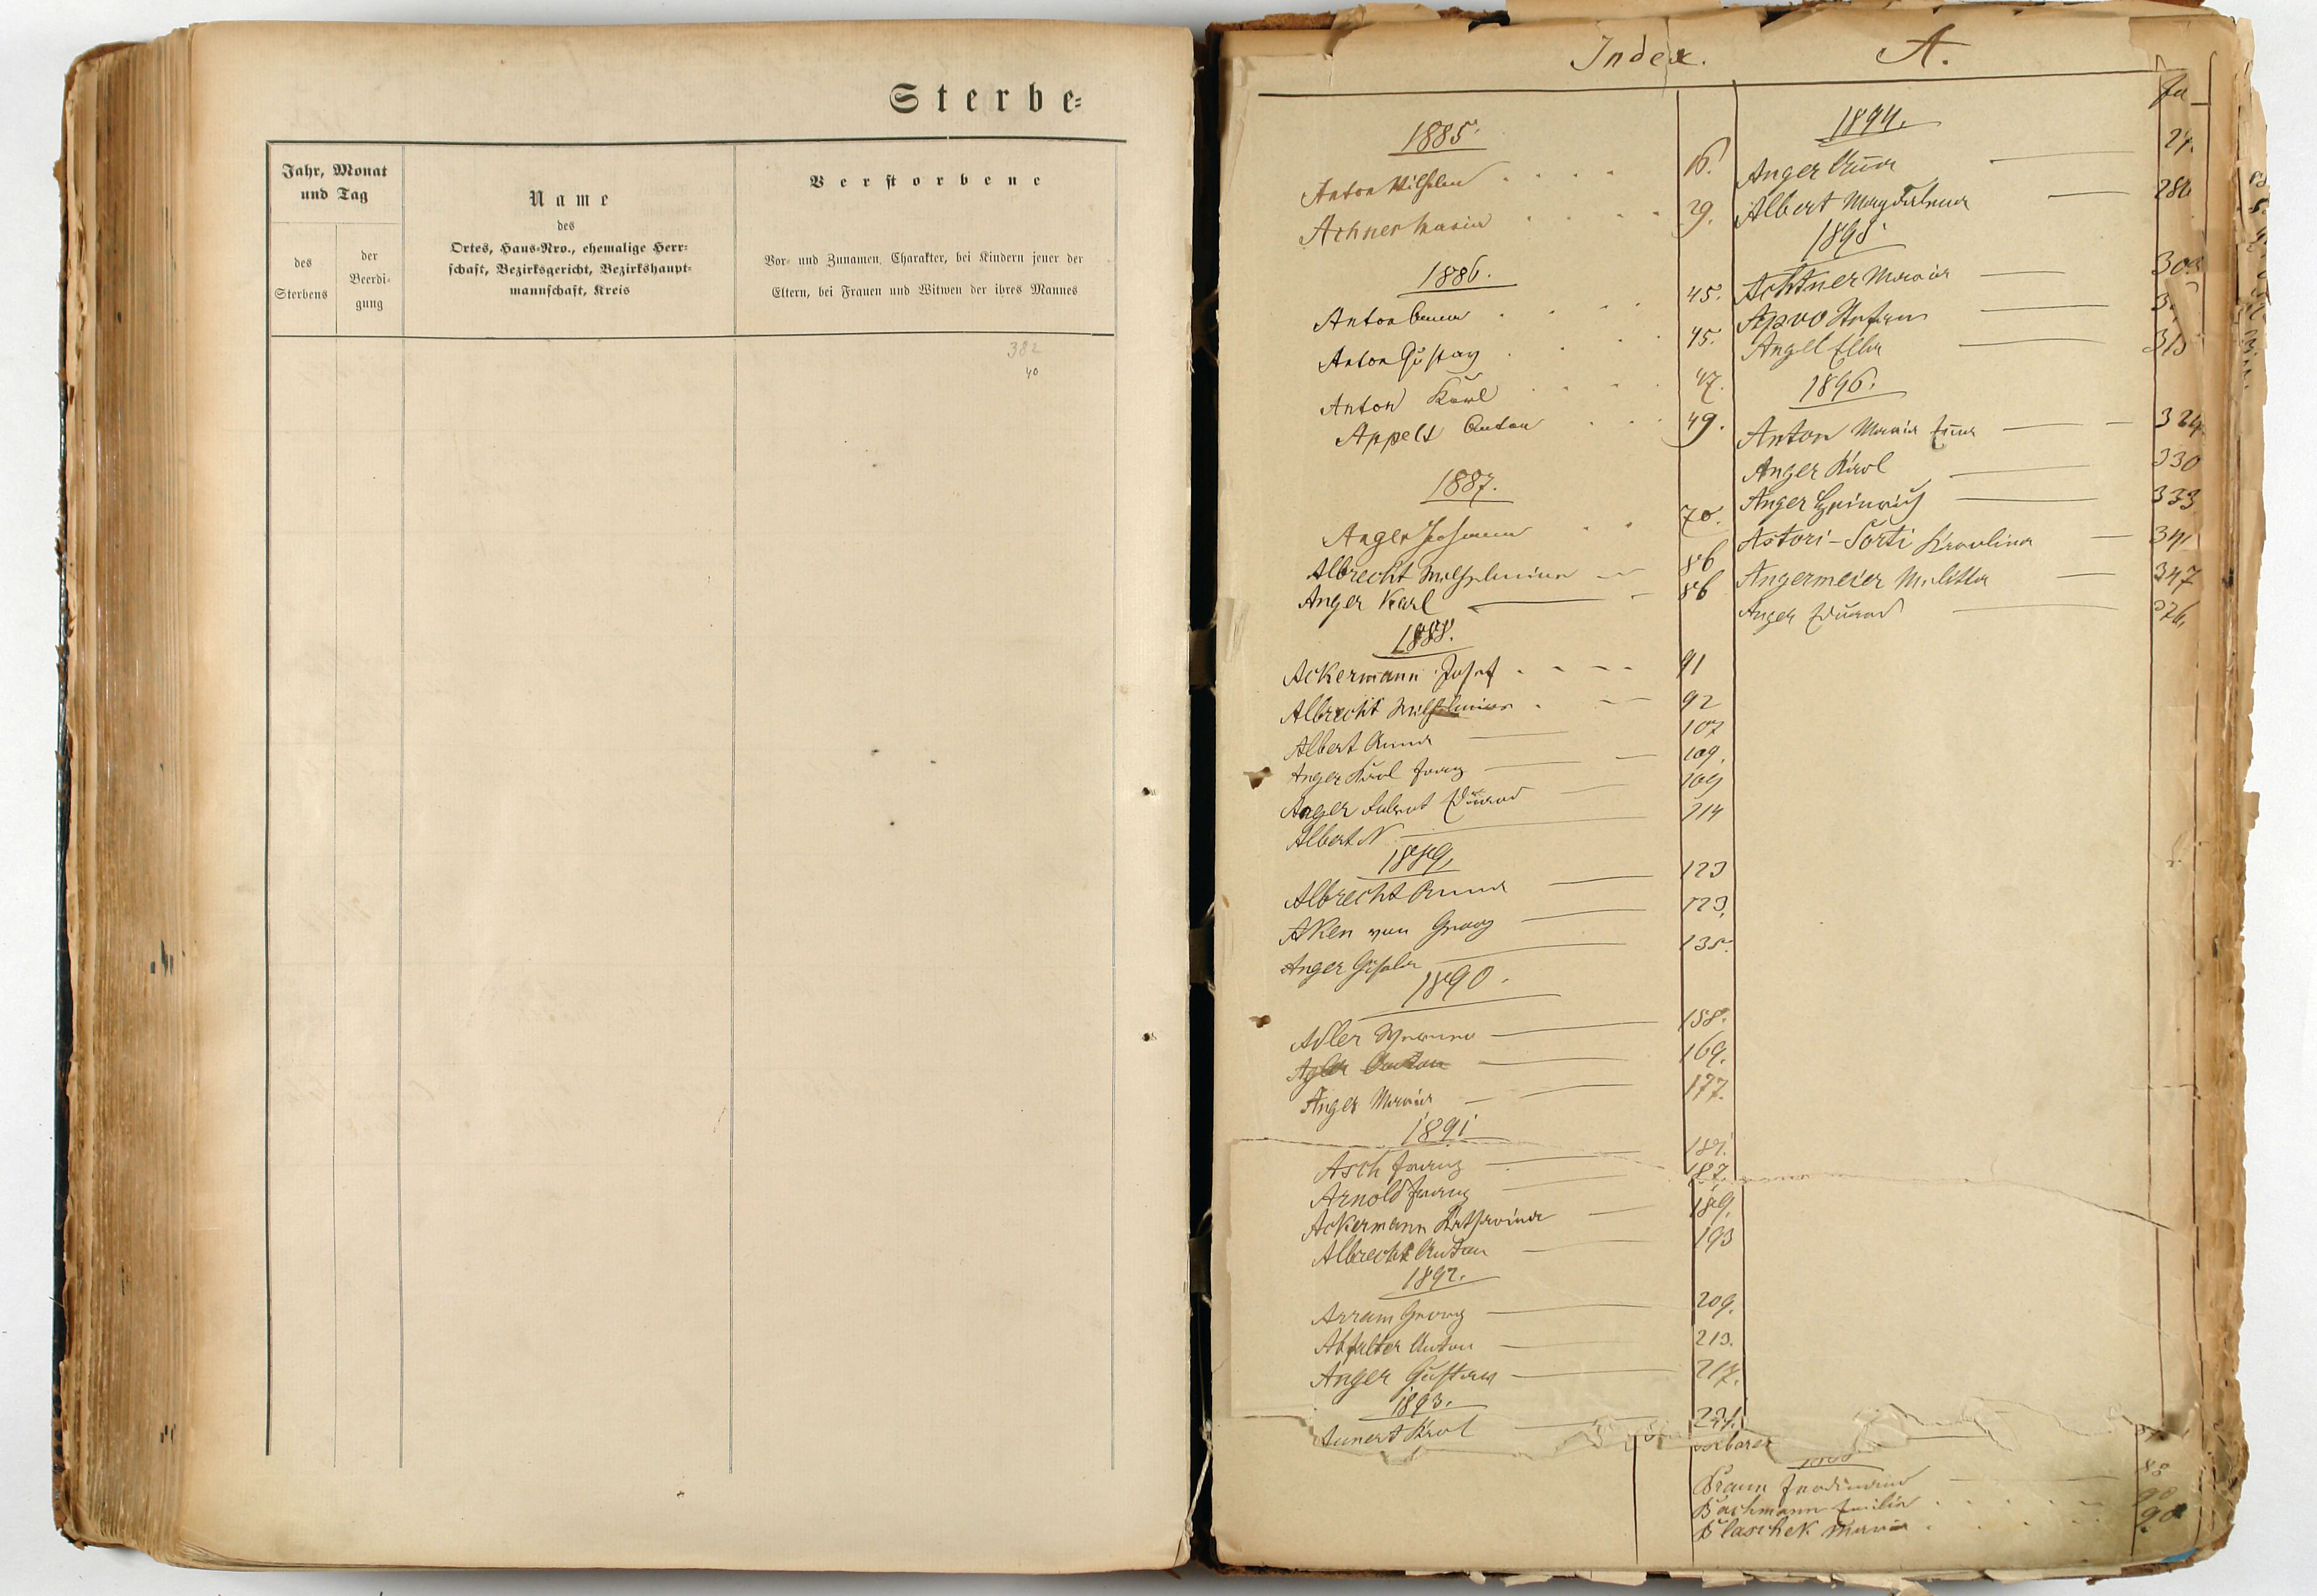 Sterbe-
Jahr, Monat
und Tag
des
Sterbens
der
Beerdi-
gung
Name
des
Ortes, Haus-Nro., ehemalige Herr-
schaft, Bezirksgericht, Bezirkshaupt-
mannschaft, Kreis
Verstorbene
Vor- und Zunamen, Charakter, bei Kindern jener der
Eltern, bei Frauen und Witwen der ihres Mannes
382
40
Index. A.
1885.
Anton Wilhelm 16.
Achner Maria 29.
1886.
Anton Anna 45.
Anton Gustav 45.
Anton Karl 47.
Appelt Anton 49.
1887.
Anger Johann 70.
Albrecht Wilhelmine 86
Anger Karl 86
1888.
Ackermann Josef 91
Albrecht Wilhelmine 92
Albert Anna 107
Anger Karl Franz 109.
Anger Eduard 109
Albert N 114
1889,
Albrecht Anna 123
Aken van Georg 123,
Anger Gisela 135.
1890.
Adler 158.
Anton 169.
Anger Maria 177.
1891
Asch Franz 181.
Arnold Franz 187
Ackermann Katharina 189,
Albrecht Anton 193
1892.
Arram Georg 209.
Abfalter Anton 213.
Anger Gustav 217.
1893.
Aunert Karl
1894.
Anger Anna
Albert Magdalena 280
1895.
Achtner Maria
Apvo Stefan
Angel Ella 315
1896.
Anton Maria Anna 324.
Anger Karl 330
Anger Heinrich 333
Astori-Sorti Karolina 341
Angermeier Melitta 347
Anger Eduard 376,
Braun Ferdinand 88
Bachmann Emilia 90
Blaschek Maria 90